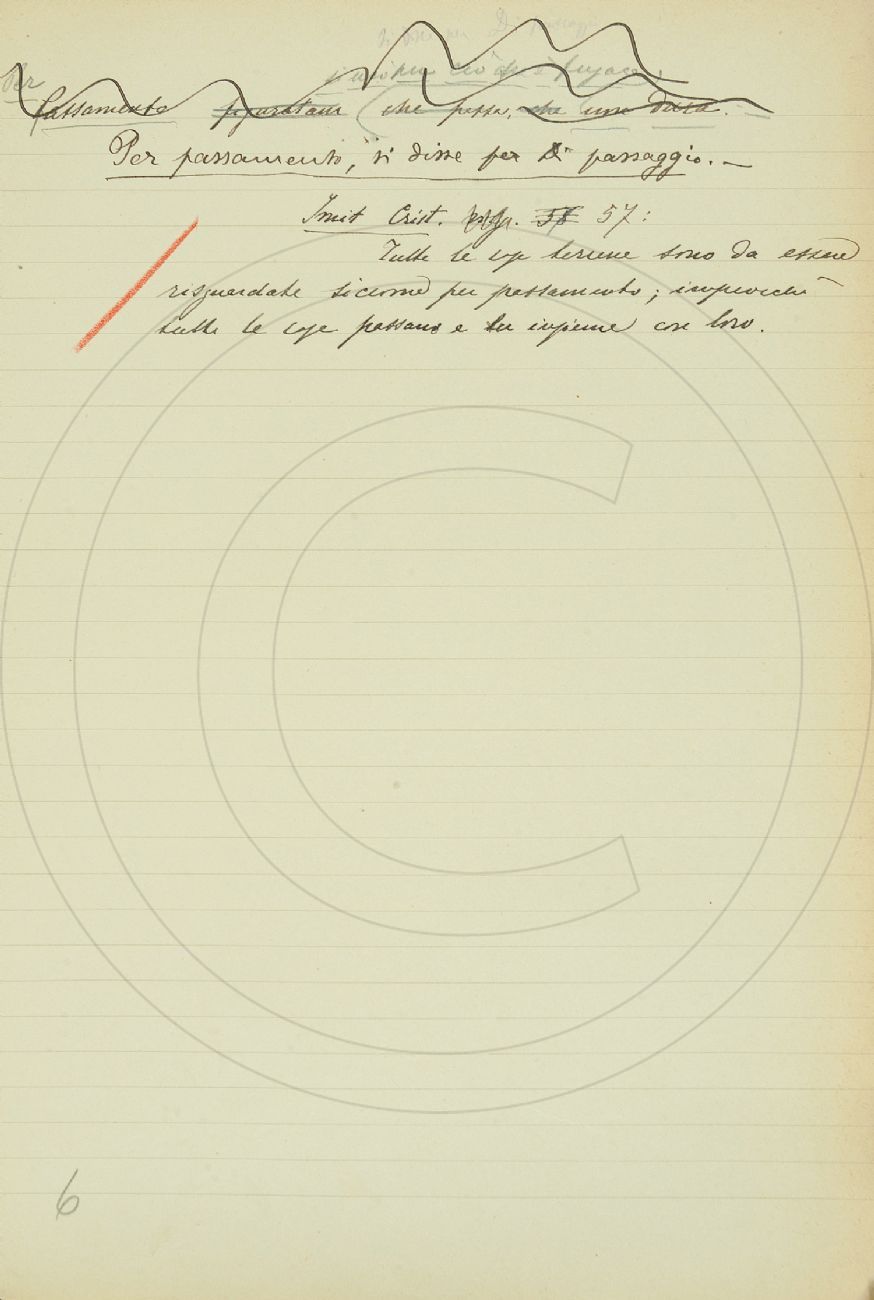 Per
Passamento figuratam che passa, che non dura.
Per passamento, si disse per Di passaggio. —
Imit Crist. pag. 56 57:
Tutte le cose terrene sono da essere
risguardate siccome per passamento; imperocchè
tutte le cose passano e tu insieme con loro.
6